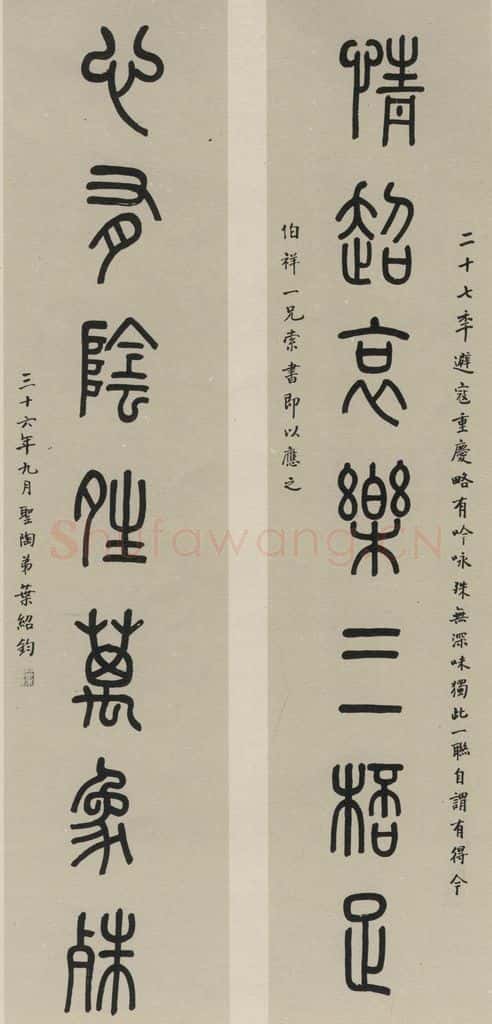 情超哀樂三桮足
二十七秊避寇重慶略有吟咏殊無深味獨此一聯自謂有得今
伯祥一兄索書即以應之
心有陰夝萬象殊
三十六年九月聖陶弟葉紹鈞
Shufawang.CN